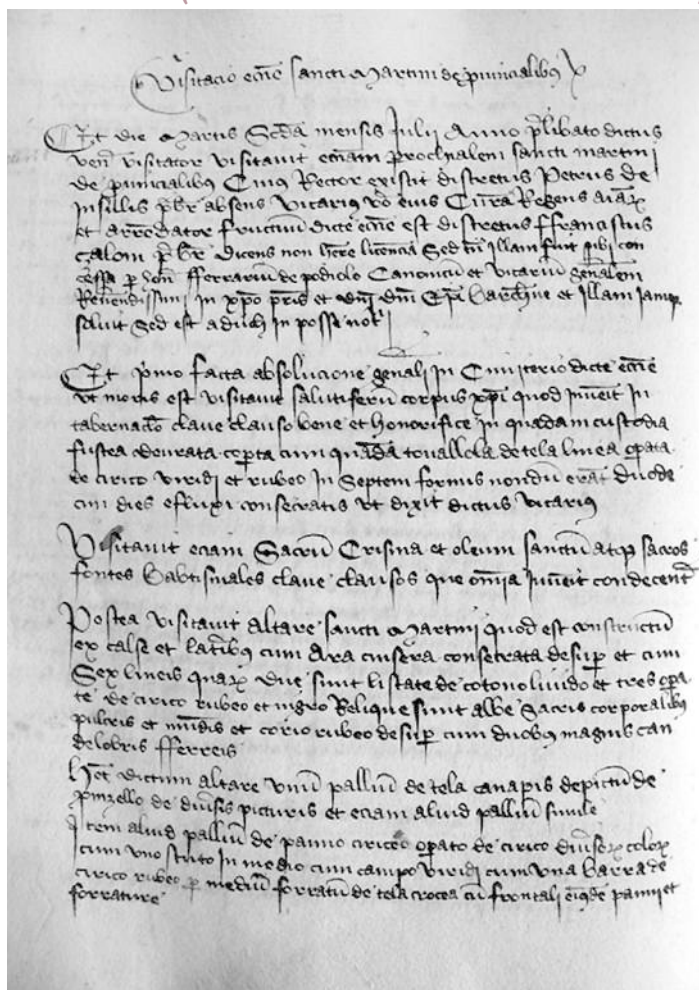 Visitacio eccīe sancti Martini de provincialibus
Et die Martis Scda mensis Julii Anno p̄libato dictus
ven̄ visitator visitavit ecciam prochialem sancti martini
de provincialibus Cuius Rector existit discretus Petrus de
Insullis p̄br̄ absens Vicarius v̄o eius Curā Regens aīar
et arrēdator fructuum dicte eccīe est discretus ffranciscus
calom p̄br̄ Dicens non hr̄e licencia Sed tn̄ illam fuit sibi con
cessa per hon̄ fferrariū de podiolo Canonicū et vicariū gēnalem
Reverendissimi in xp̄o pr̄is et dn̄i dn̄i Ep̄i barchn̄e et illam iamp
solvit Sed est aduch in posse not̄
Et p̄mo facta absolucione gēnali in Cimiterio dicte eccīe
ut moris est visitavit salutiferū corpus xp̄i quod invēit in
tabernaclo clave clauso bene et honorifice in quadam custodia
fustea deurata cop̄ta cum quadā tovallola de tela linea op̄ata
de cirico viridi et rubeo in Septem formis nondū erāt duode
cim dies efluxi consecratis ut dixit dictus vicarius
Visitavit eciam Sacrū Crisma et oleum sanctū atq sacros
fontes babtismales clave clausos que om̄ia invēit condecent̄
Postea visitavit altare sancti Martini quod est constructū
ex calse et lat̄ibus cum Ara consecrata desup̄ et cum
Sex lineis quar due sunt listate de cotono livido et tres op̄a
te de cirico rubeo et nigro Relique sunt albe Sacris corporalibus
pulcris et mūdis et corio rubeo desup̄ cum duobus magnis can
delobris fferreis
Het dictum altare unū pallium de tela canapis depictū de
pinzello de div̄sis picturis et eciam aliud pallium simile
Item aliud palliū de panno ciriceo op̄ato de cirico div̄sor color
cum uno scuto in medio cum campo viridi cum una barra de
cirico rubeo p mediū forratū de tela crocea cū frontali eiusdē panni et
forrature